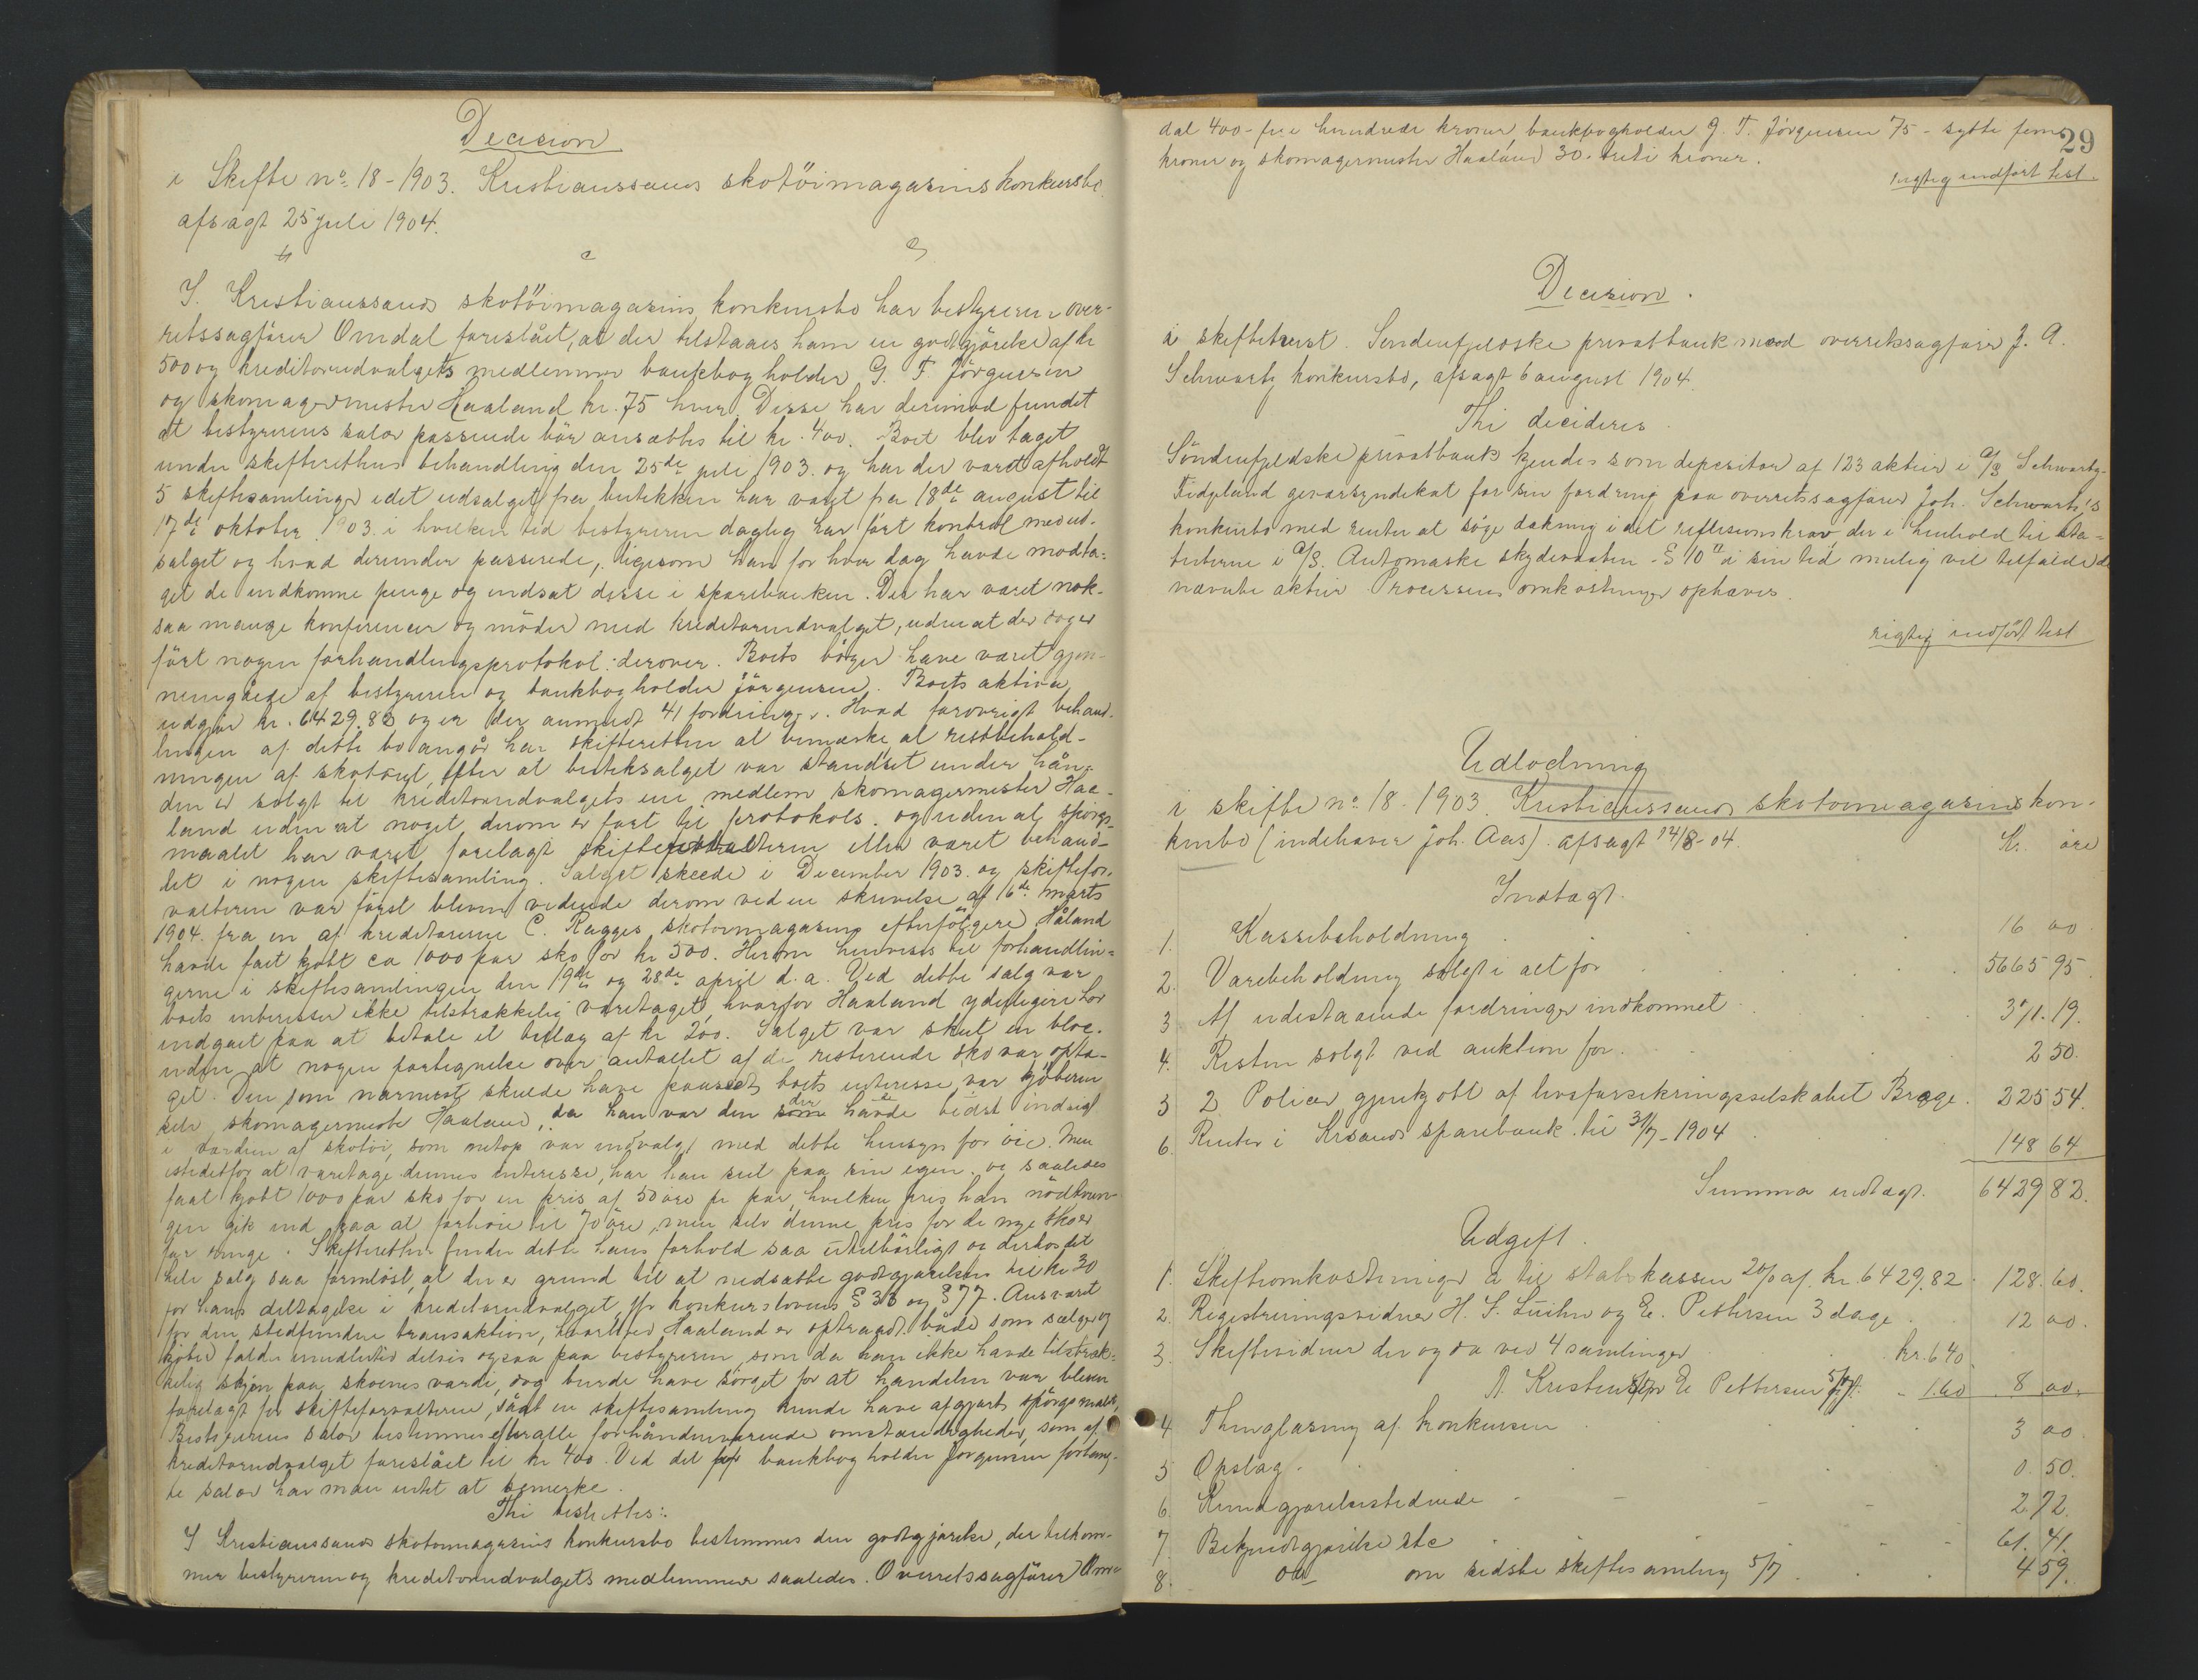 Decision
i Skifte no. 18-1903. Kristianssands skotöimagasins konkursbo
afsagt 25 juli 1904.
I. Kristianssands skotöimagasins konkursbo har bestyreren over-
retssagförer Omdal foreslået, at der tilstaaes ham en godtgjörelse af kr
500 og kreditorudvalgets medlemmer bankbogholder G. T. Jörgensen
og skomagermester Haaland kr. 75 hver. Disse har derimod fundet
at bestyrerens salær passende bör ansættes til kr. 400. Boet blev taget
under skifterettens behandling den 25de juli 1903. og har der været afholdt
5 skiftesamlinger idet udsalget fra butikken har varet fra 18de august til
17de oktober 1903. i hvilken tid bestyreren daglig har fört kontrol med ud-
salget og hvad derunder passerede, ligesom han for hver dag havde modta-
get de indkomne penge og indsat disse i sparebanken. Der har været nok-
saa mange konferencer og möder med kreditorudvalget, uden at der dog er
fört nogen forhandlingsprotokol derover. Boets böger have været gjen-
nemgåede af bestyreren og bankbogholder Jörgensen. Boets aktiva
udgjör kr. 6429.82 og er der anmeldt 41 fordringer. Hvad forövrigt behand-
lingen af dette bo angår har skifteretten at bemærke at restbehold-
ningen af skotöiet, efter at butiksalget var standset under hån-
den er solgt til kreditorudvalgets ene medlem skomagermester Haa-
land uden at noget derom er fört til protokols. og uden at spörgs-
maalet har været forelagt skifteforvalteren eller været behand-
let i nogen skiftesamling. Salget skeede i December 1903. og skiftefor-
valteren var först bleven vidende derom ved en skrivelse af 16de marts
1904. fra en af kreditorerne C. Ragges skotöimagasins efterfölgere Håland
havde faat kjöbt ca 1000 par sko for kr 500. Herom henvises til forhandlin-
gerne i skiftesamlingen den 19de og 28de april d. a. Ved dette salg var
boets interesser ikke tilstrækkelig varetaget, hvorfor Haaland yderligere har
indgaaet paa at betale et tillæg af kr 200. Salget var skeet en bloc.
uden at nogen fortegnelse over antallet af de resterende sko var opta-
get. Den som nærmest skulde have passet boets interesse, var kjöberen
selv skomagermester Haaland, da han var den der havde bedst indsigt
i værdien af skotöi, som netop var indvalgt med dette hensyn for öie. Men
istedetfor at varetage dennes interesse, har han seet paa sin egen. og saaledes
faat kjöbt 1000 par sko for en pris af 50 öre pr par, hvilken pris han nödtvun-
gen gik ind paa at forhöie til 70 öre, men selv denne pris for de nye sko er
for ringe. Skifteretten finder dette hans forhold saa utilbörligt og derhos det
hele salg saa formlöst, at der er grund til at nedsætte godtgjörelsen til kr 30
for hans deltagelse i kreditorudvalget, jfr konkurslovens § 36 og § 77. Ansvaret
for den stedfundne transaktion, hvorved Haaland er optraadt både som sælger og
kjöber falder imidlertid delvis ogsaa paa bestyreren, som da han ikke havde tilstræk-
kelig skjön paa skoenes værdi, dog burde have sörget for at handelen var bleven
forelagt for skifteforvalteren, sådt en skiftesamling kunde have afgjort spörgsmålet,
Bestyrerens salær bestemmes efter alle forhåndenværende omstændigheder, som af
kreditorudvalget foreslået til kr 400. Ved det for bankbogholder Jörgensen forlang-
te salær har man intet at bemerke.
Thi besluttes:
I Kristianssands skotöimagasins konkursbo bestemmes den godtgjörelse, der tilkom-
mer bestyreren og kreditorudvalgets medlemmer saaledes. Overretssagförer Om-
29
dal 400 – fire hundrede kroner, bankbogholder G. T. Jörgensen 75 – sytti fem
kroner og skomagermester Haaland 30. treti kroner.
rigtig indfört test.
Decision.
i skiftetvist. Söndenfjeldske privatbank mod overretssagförer J. A.
Schwartz konkursbo, afsagt 6 august 1904.
Thi decideres
Söndenfjeldske privatbank kjendes som depositar af 123 aktier i A/S Schwartz-
Fidjeland geværsyndikat for sin fordring paa overretssagförer Joh. Schwartz's
konkursbo med renter at söge dækning i det refusionskrav, der i henhold til sta-
tuterne i A/S. Automatiske skydevaaben - § 10 i sin tid mulig vil tilfalde de
nævnte aktier. Processens omkostninger ophæves.
rigtig indfört test
Udlodning
i skifte no. 18. 1903. Kristianssands skotöimagasins kon-
kursbo (indehaver Joh. Aas). afsagt 14/8-04.
Kr. öre
Indtægt.
1. Kassebeholdning 16 00
2. Varebeholdning solgt i alt for 5665 95.
3 Af udestaaende fordringer indkommet 371. 19.
4. Resten solgt ved auktion for 2 50.
5 2 Policer gjenkjöbt af livsforsikringsselskabet Brage. 225 54.
6. Renter i Krsands sparebank til 31/7-1904 148 64
Summa indtægt. 6429 82.
Udgift.
1. Skifteomkostninger a til statskassen 2% af kr. 6429.82 128. 60.
2. Registreringsvidner H. S. Luihn og E. Pettersen 3 dage 12 00.
3. Skiftevidner der og da ved 4 samlinger kr. 6 40
A. Kristensen og E Pettersen 5/7 - 1.60 8 00.
4 Thinglæsning af konkursen 3 00
5 Opslag 0. 50.
6. Kundgjörelsestidende 2 72.
7. Bekjendtgjörelse etc 61. 41.
8. do om sidste skiftesamling 5/7 4 59.